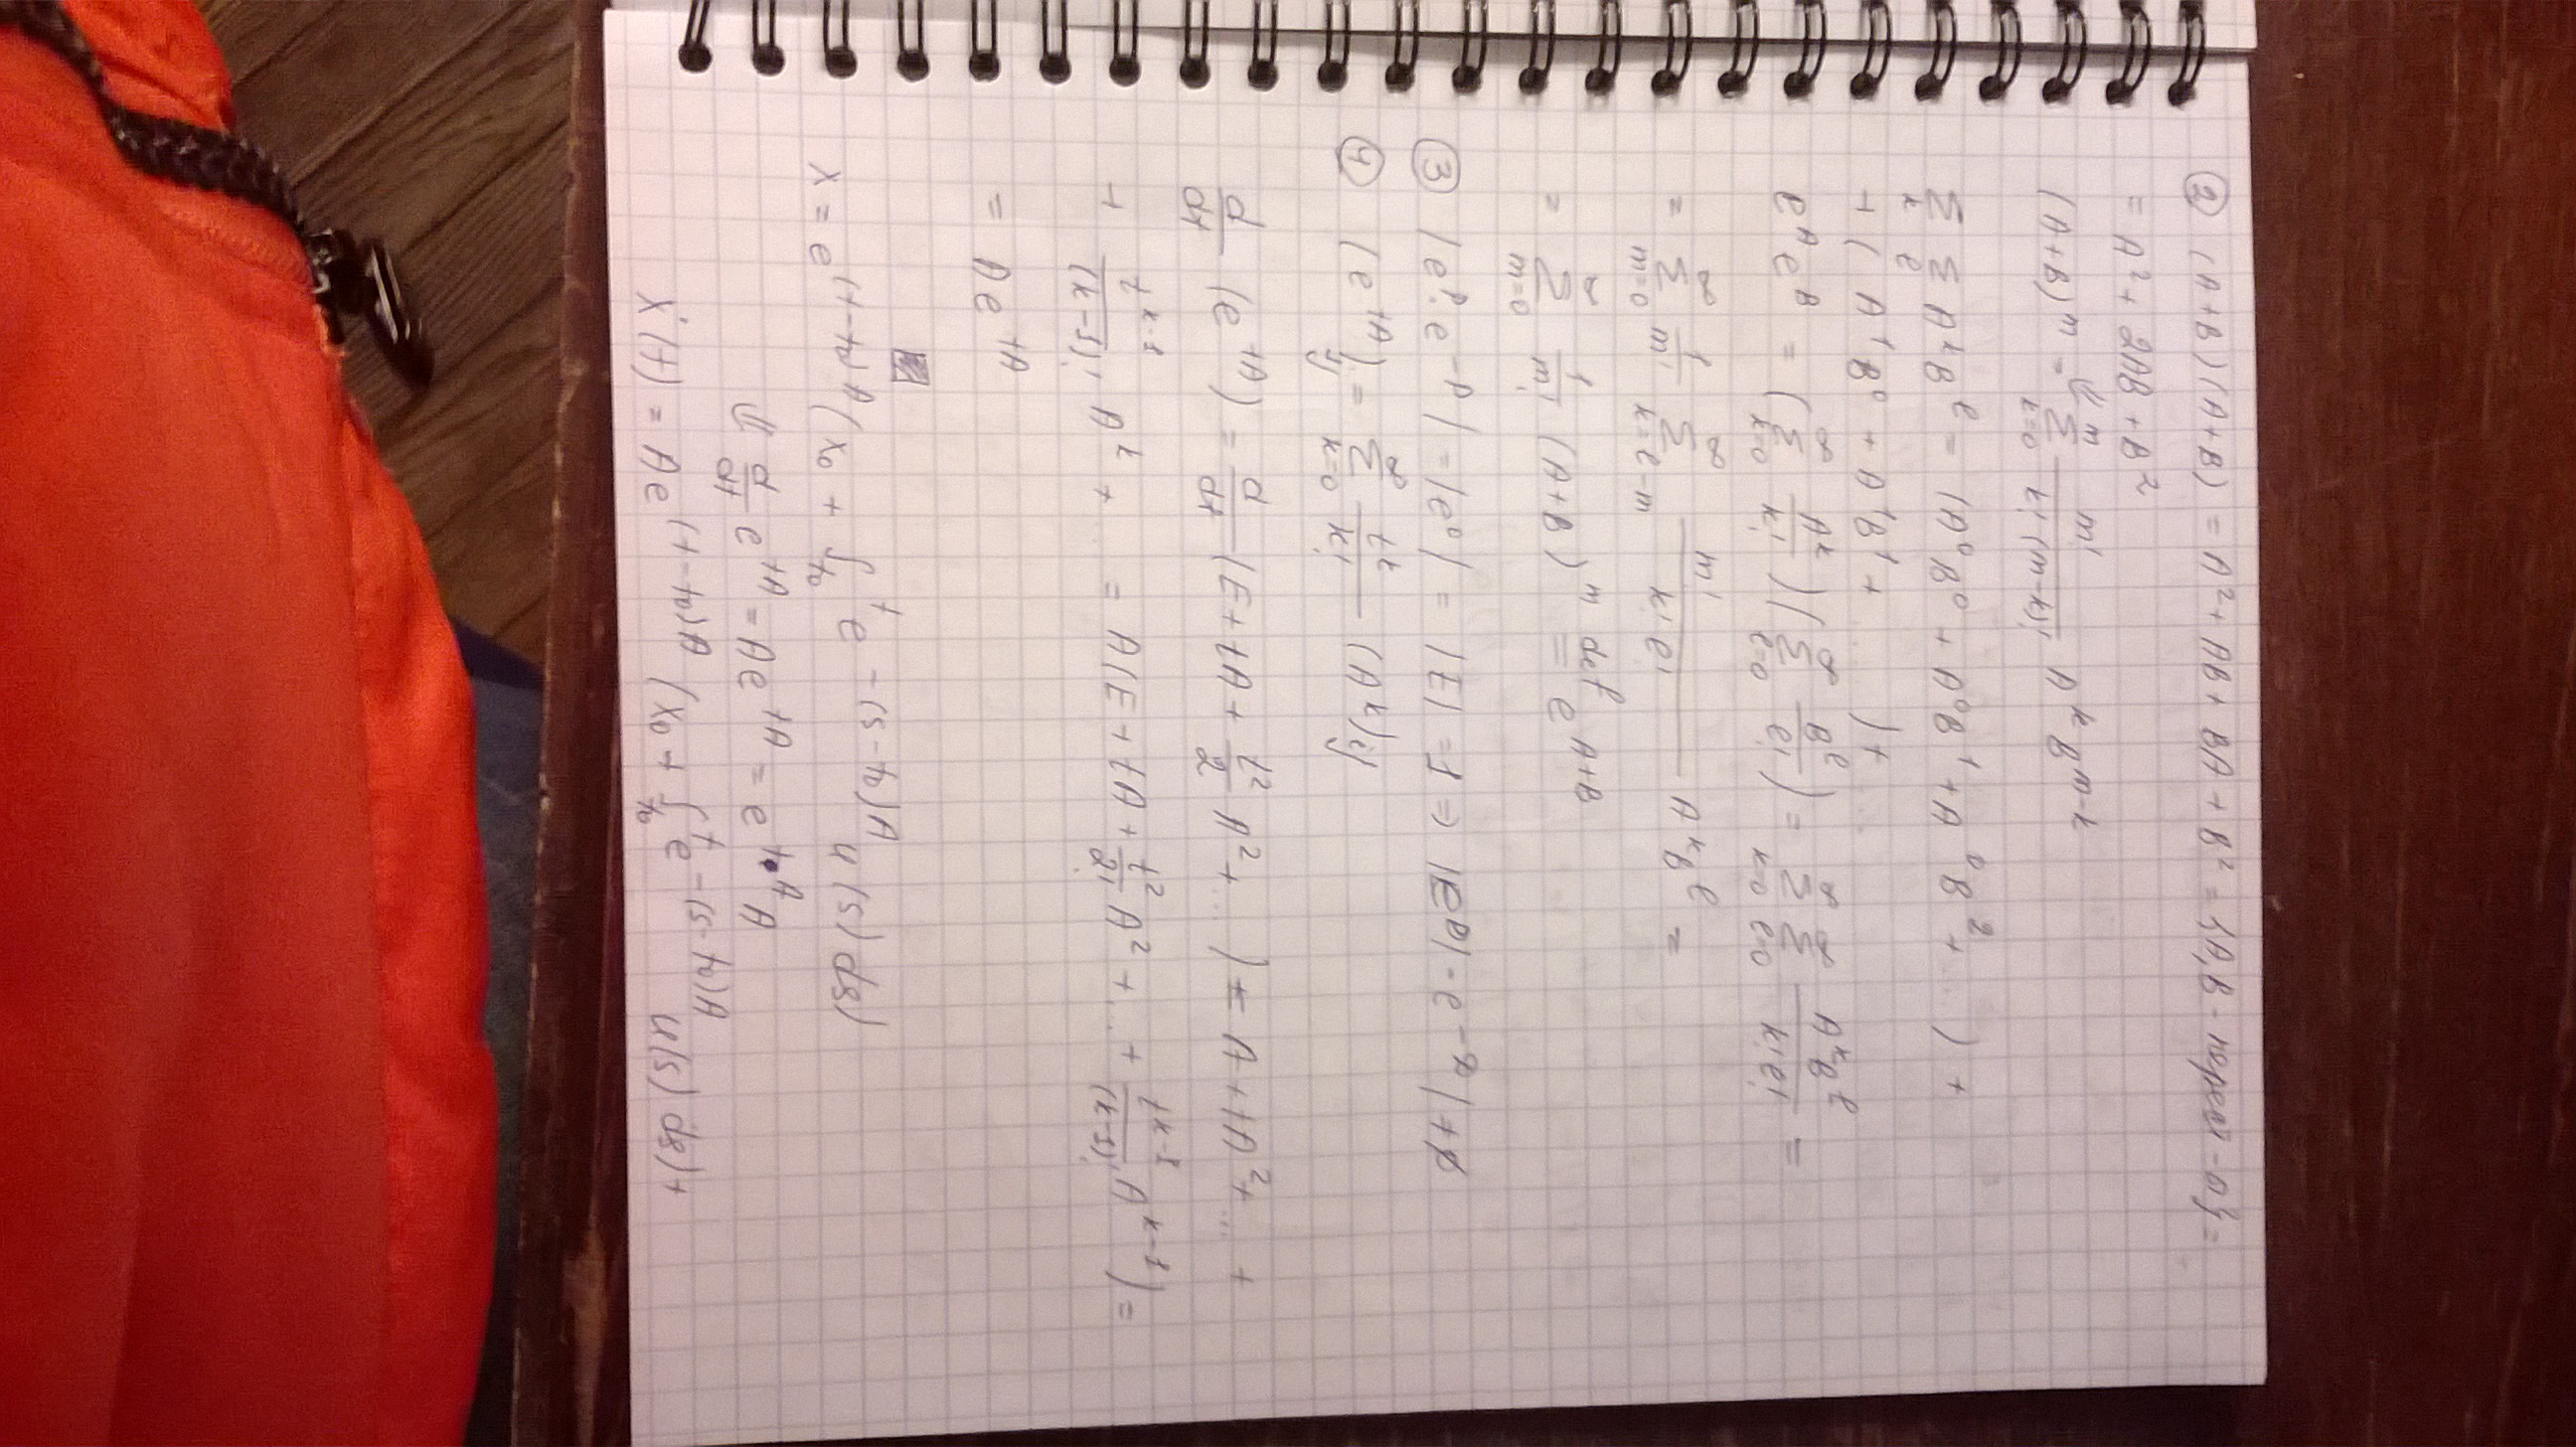 ② (A+B)(A+B) = A² + AB + BA + B² = {A,B - перест-д} =
= A² + 2AB + B²
⇓
(A+B)^m = \sum_{k=0}^{m} \frac{m!}{k!(m-k)!} A^k B^{m-k}
\sum_k \sum_l A^k B^l = (A⁰B⁰ + A⁰B¹ + A⁰B² + ...) +
+ (A¹B⁰ + A¹B¹ + ...) + ...
e^A e^B = (\sum_{k=0}^{∞} \frac{A^k}{k!})(\sum_{l=0}^{∞} \frac{B^l}{l!}) = \sum_{k=0}^{∞} \sum_{l=0}^{∞} \frac{A^k B^l}{k! l!} =
= \sum_{m=0}^{∞} \frac{1}{m!} \sum_{k=l-m}^{∞} \frac{m!}{k! l!} A^k B^l =
= \sum_{m=0}^{∞} \frac{1}{m!} (A+B)^m \overset{def}{=} e^{A+B}
③ |e^A · e^{-A}| = |e⁰| = |E| = 1 ⇒ |e^A| · |e^{-A}| ≠ 0
④ (e^{tA})_{ij} = \sum_{k=0}^{∞} \frac{t^k}{k!} (A^k)_{ij}
\frac{d}{dt} (e^{tA}) = \frac{d}{dt} (E + tA + \frac{t²}{2} A² + ...) = A + tA² + ... +
+ \frac{t^{k-1}}{(k-1)!} A^k + ... = A(E + tA + \frac{t²}{2!} A² + ... + \frac{t^{k-1}}{(k-1)!} A^{k-1}) =
= A e^{tA}
X = e^{(t-t₀)A} (x₀ + \int_{t₀}^{t} e^{-(s-t₀)A} u(s) ds)
⇓ \frac{d}{dt} e^{tA} = A e^{tA} = e^{tA} A
Ẋ(t) = A e^{(t-t₀)A} (x₀ + \int_{t₀}^{t} e^{-(s-t₀)A} u(s) ds) +